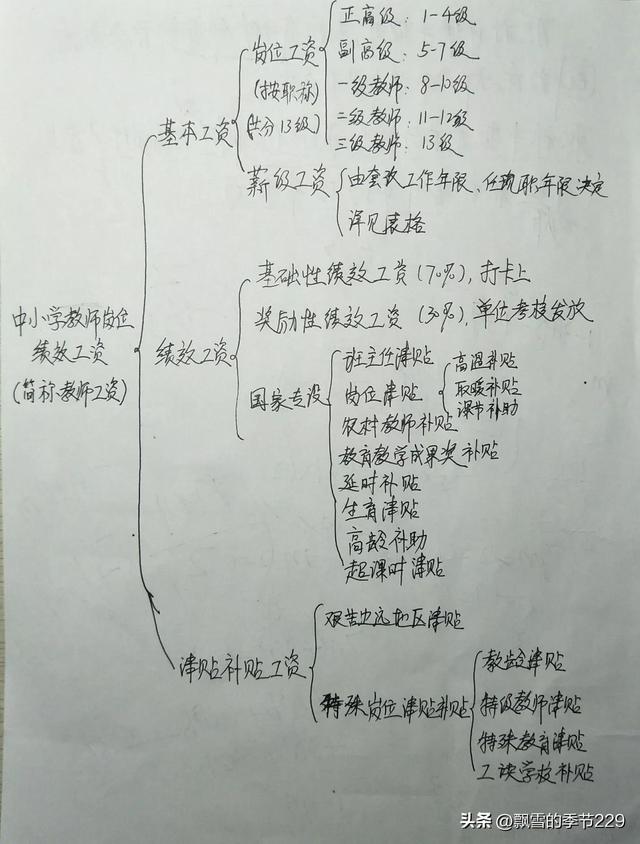 正高级：1-4级
岗位工资
副高级：5-7级
(按职称)
一级教师：8-10级
(共分13级)
二级教师：11-12级
基本工资
三级教师：13级
薪级工资
由套改工作年限、任现职年限决定
详见表格
基础性绩效工资(70%)，打卡上
中小学教师岗位
绩效工资
(简称教师工资)
奖励性绩效工资(30%)，单位考核发放
绩效工资
班主任津贴
高温补贴
国家专设
岗位津贴
取暖补贴
课节补助
农村教师补贴
教育教学成果奖补贴
延时补贴
生育津贴
高龄补助
超课时津贴
艰苦边远地区津贴
津贴补贴工资
教龄津贴
特殊岗位津贴补贴
特级教师津贴
特殊教育津贴
工读学校补贴
头条 @飘雪的季节229